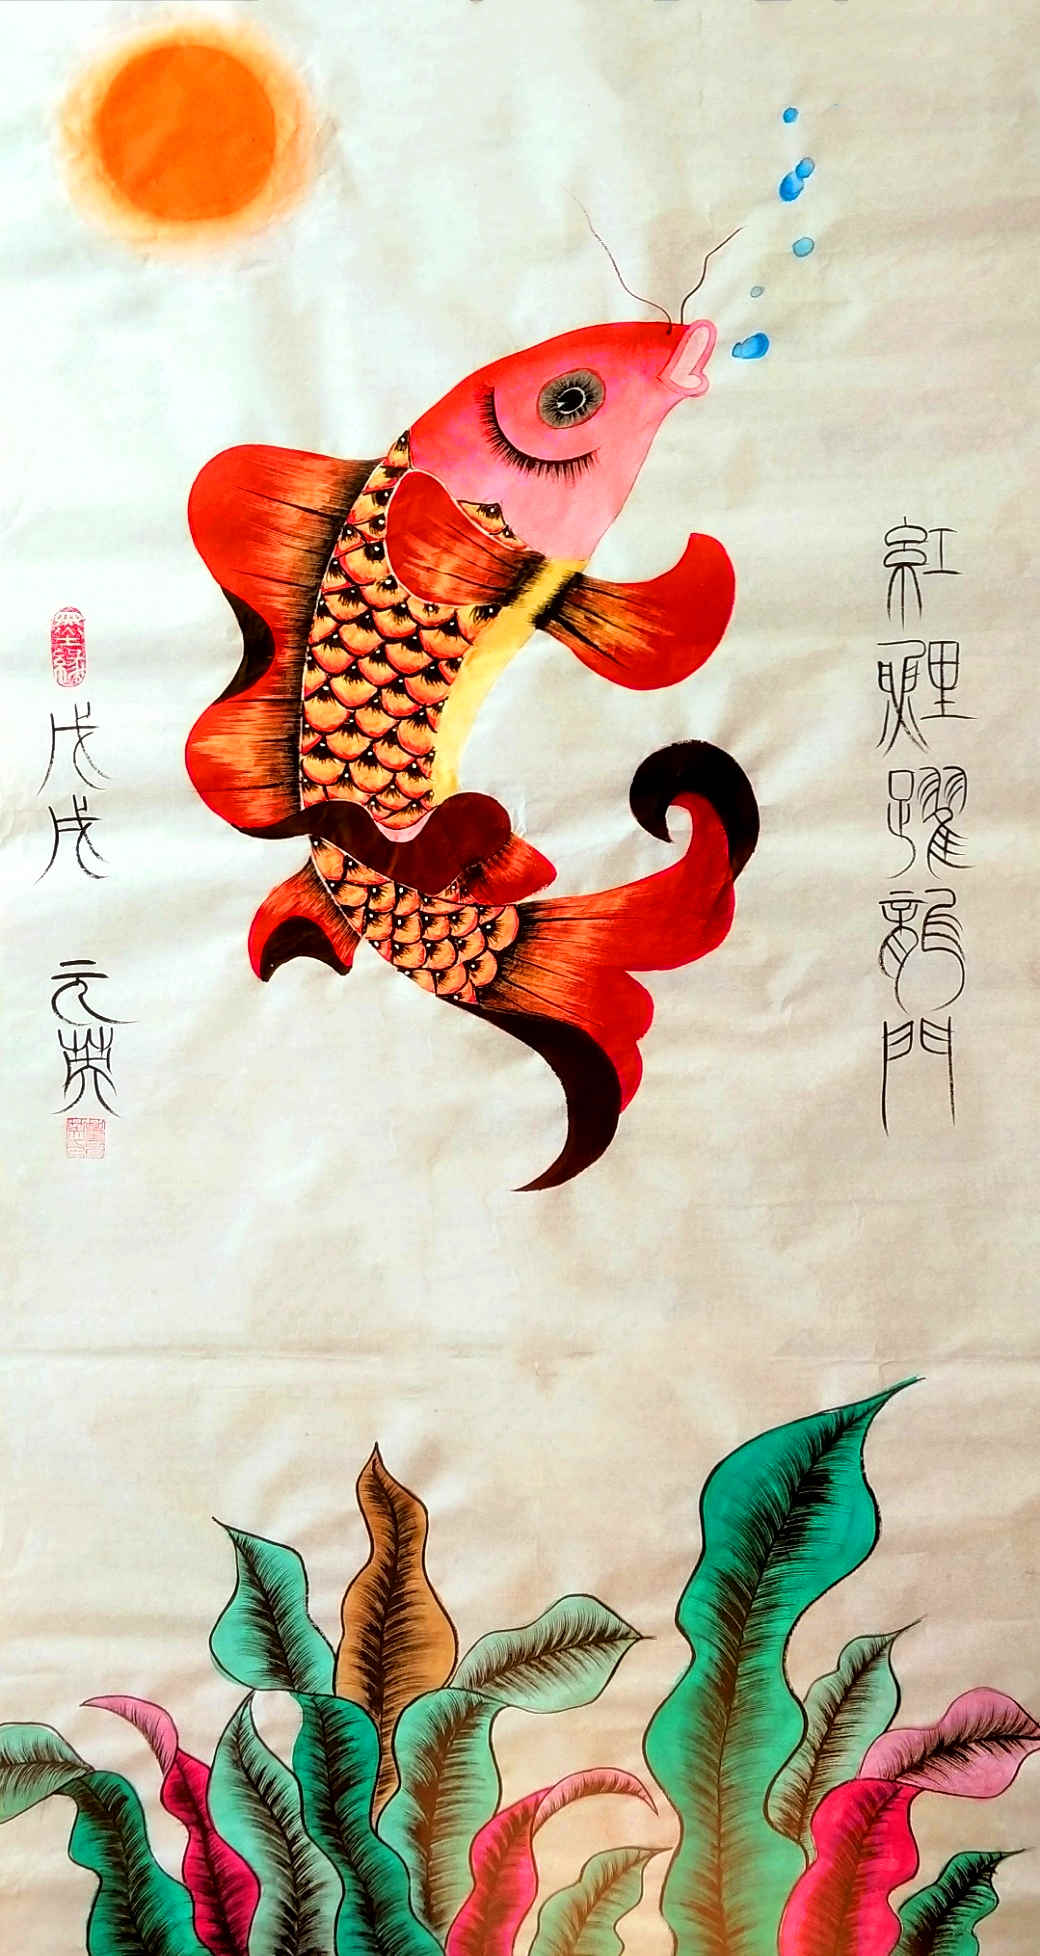 紅鯉躍龍門
戊戌
元英